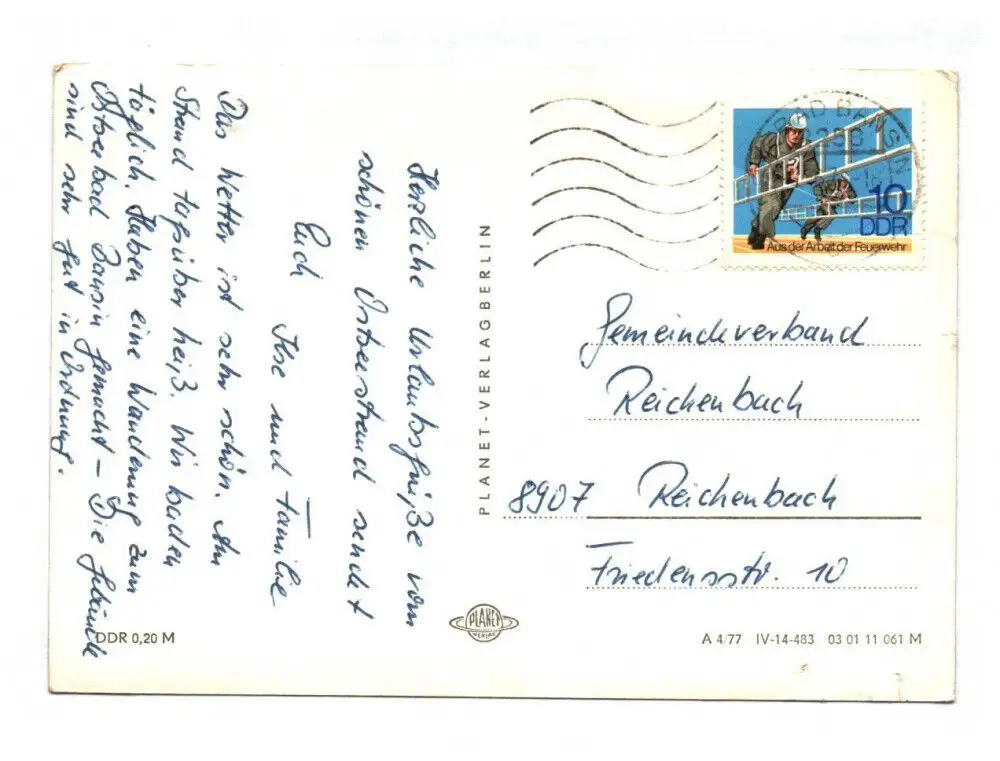 Herzliche Urlaubsgrüße vom
schönen Ostseestrand sendet
Euch
Ilse und Familie
Das Wetter ist sehr schön. Am
Strand tagsüber heiß. Wir baden
täglich. Haben eine Wanderung zum
Ostseebad Bansin gemacht – Die Gebäude
sind sehr gut in Ordnung.
DDR 0,20 M
PLANET-VERLAG BERLIN
PLANET
VERLAG
BAD BANSIN
10
DDR
Aus der Arbeit der Feuerwehr
Gemeindeverband
Reichenbach
8907 Reichenbach
Friedensstr. 10
A 4/77 IV-14-483 03 01 11 061 M